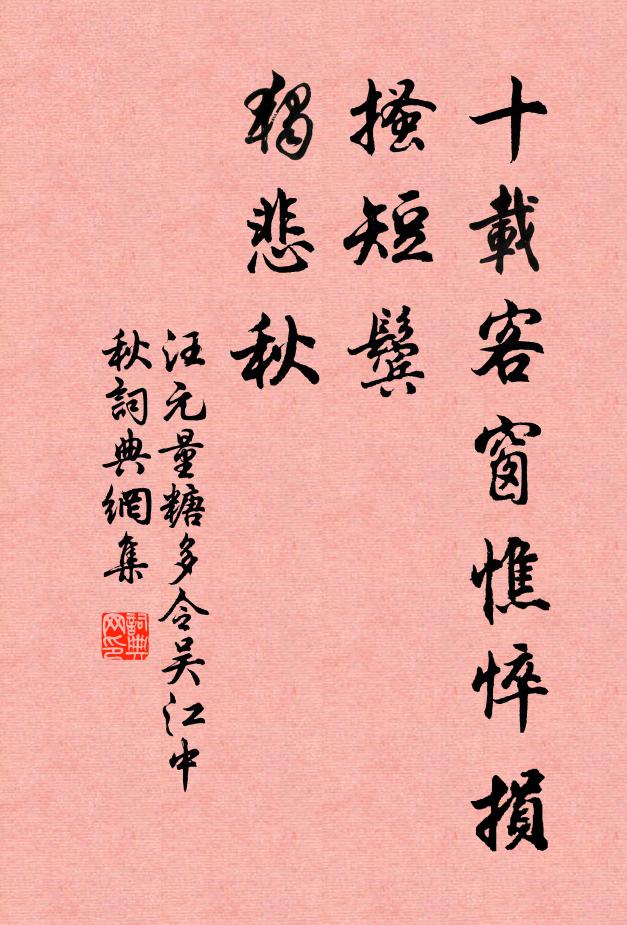 十載客窗憔悴損
搔短鬢
獨悲秋
汪元量糖多令吴江中
秋詞典網集
詞典网印